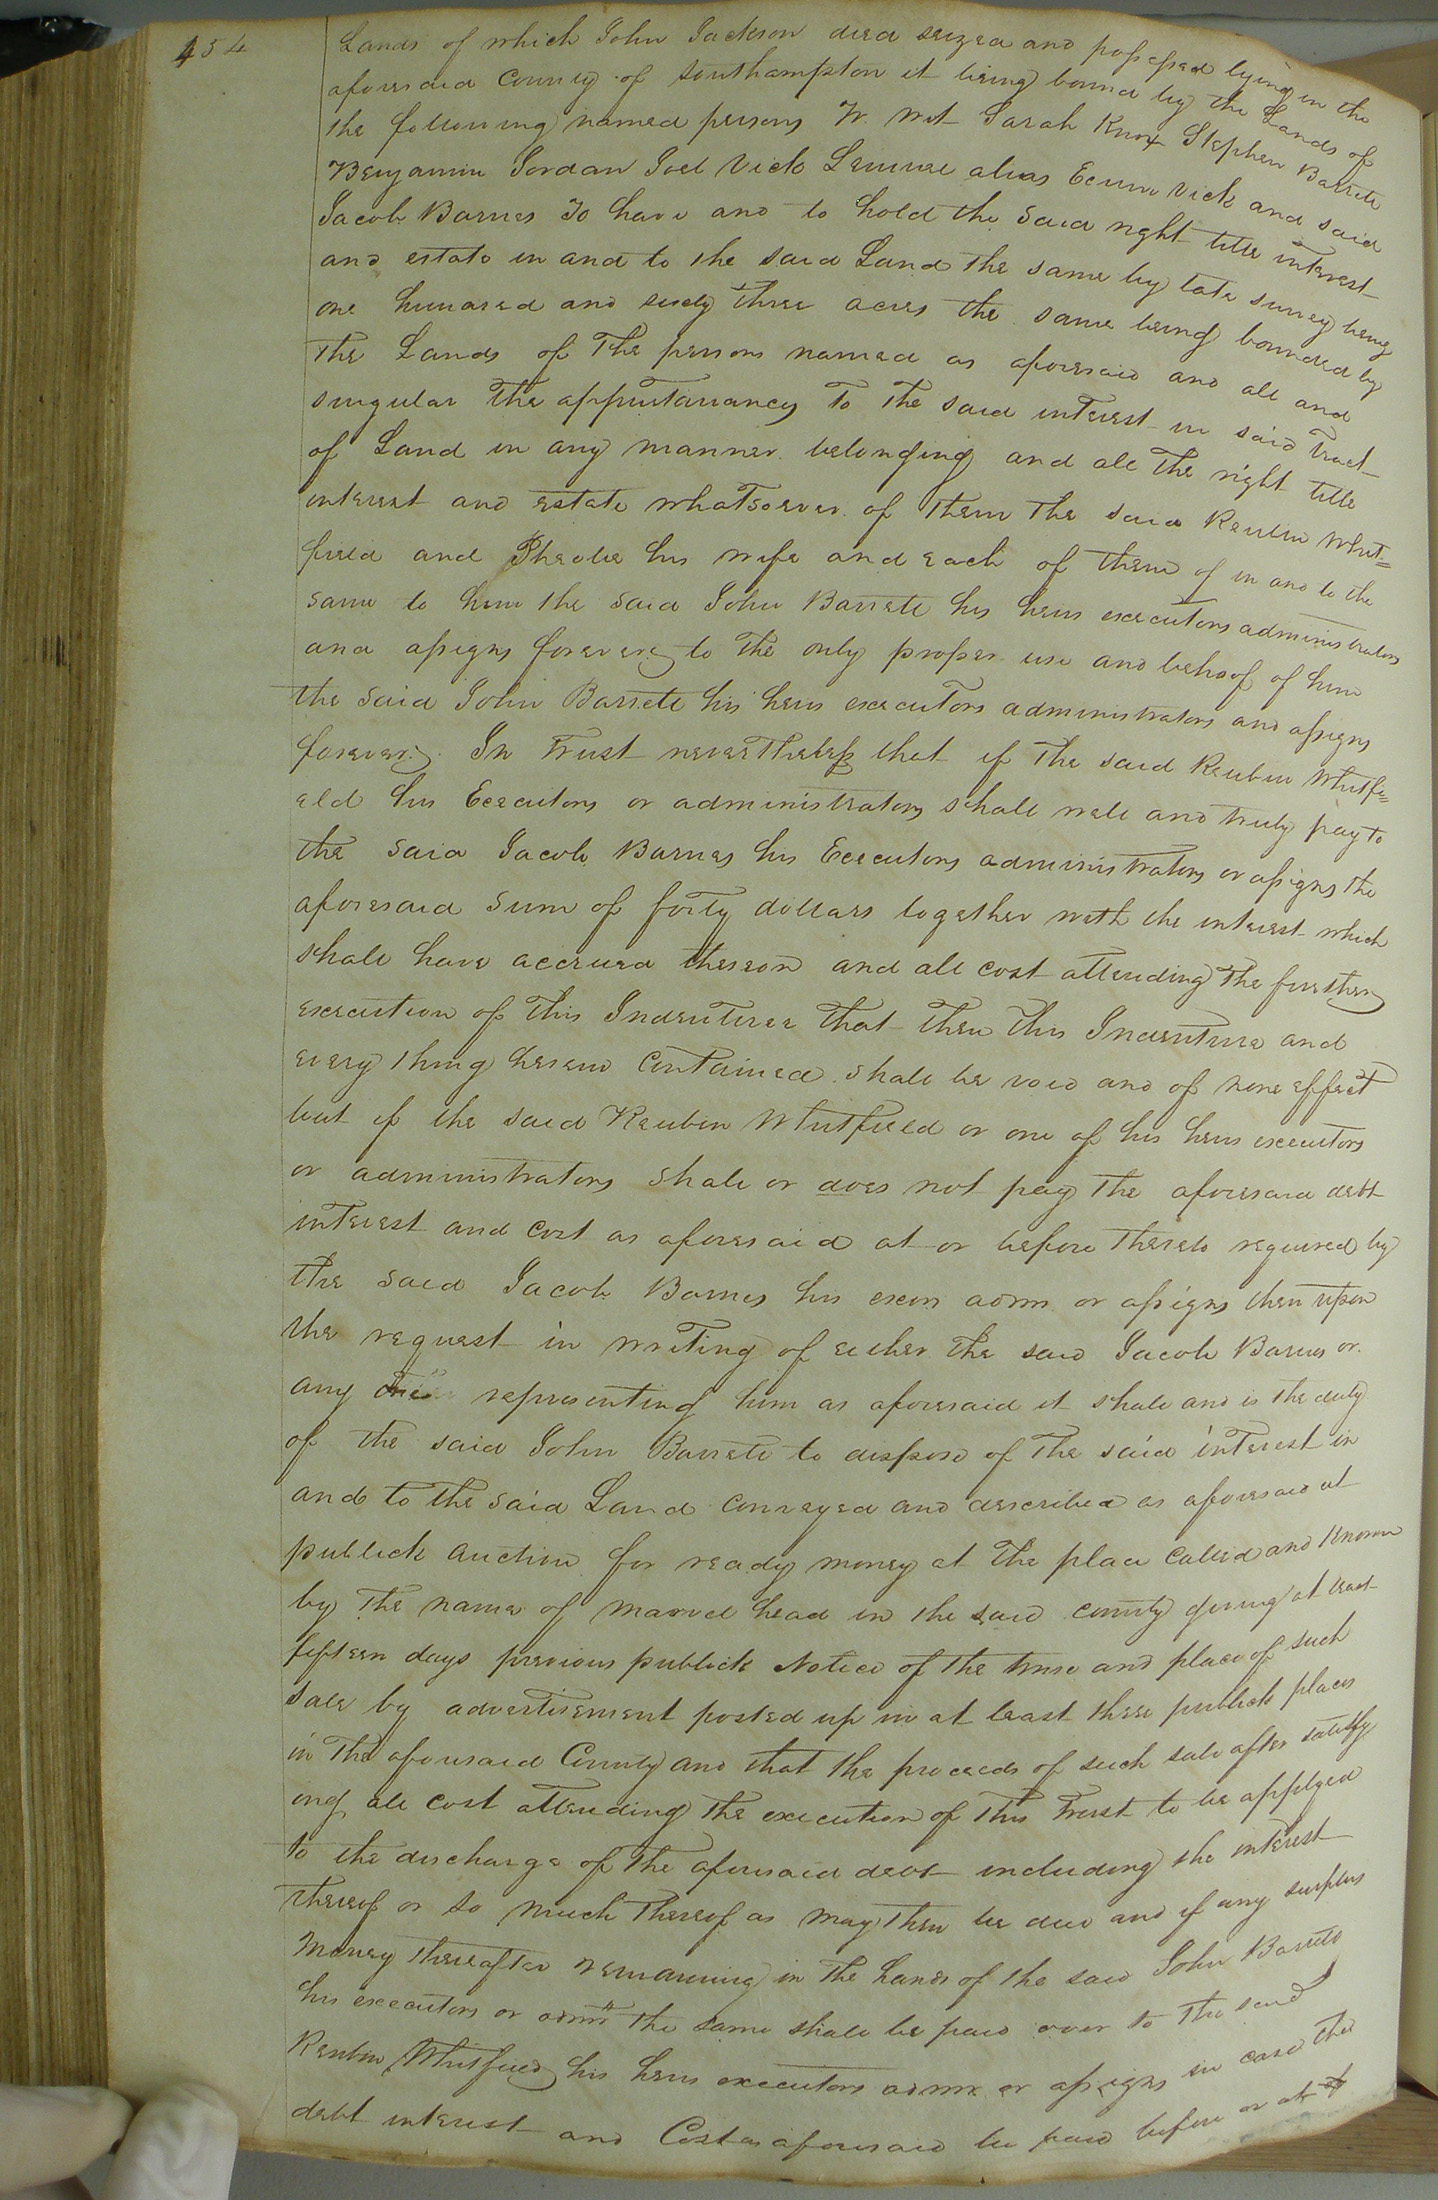 454
Lands of which John Jackson died seized and possessed lying in the
aforesaid County of Southampton it being bound by the Lands of
the following named persons To Wit Sarah Knox Stephen Barrett
Benjamin Jordan Joel Vick Lemuel alias Ecum Vick and said
Jacob Barnes To have and to hold the said right title interest
and estate in and to the said Land the same by late survey being
one hundred and sixty three acres the same being bounded by
The Lands of The persons named as aforesaid and all and
singular the appurtanancys To The said interest in said Tract
of Land in any manner belonging and all The right title
interest and estate whatsoever of them The said Reubin Whit=
field and Pheobe his wife and each of them of in and to the
same to him the said John Barrett his heirs executors administrators
and assigns forever, to the only proper use and behoof of him
the said John Barrett his heirs executors administrators and assigns
forever. In Trust nevertheless that if The said Reubin Whitfi=
eld his Executors or administrators shall well and truly pay to
the said Jacob Barnes his Executors administrators or assigns the
aforesaid sum of forty dollars together with the interest which
shall have accrued thereon and all cost attending The further
execution of This Indenture That then This Indenture and
every thing herein Contained shall be void and of none effect
but if the said Reubin Whitfield or one of his heirs executors
or administrators shall or does not pay The aforesaid debt
interest and Cost as aforesaid at or before thereto required by
the said Jacob Barnes his exors adm or assigns then upon
the request in writing of either the said Jacob Barnes or
any one representing him as aforesaid it shall and is the duty
of the said John Barrett to dispose of The said interest in
and to the said Land conveyed and described as aforesaid at
publick auction for ready money at The place Called and Known
by The name of in the said county giving at least
fifteen days previous publick Notice of the time and place of such
sale by advertisement posted up in at least three publick places
in The aforesaid County and that the proceeds of such sale after satisfy
ing all cost attending The execution of This Trust to be applyed
to the discharge of The aforesaid debt including the interest
thereof or so much Thereof as may then be due and if any surplus
Money thereafter remaining in The hands of the said John Barrett
his executors or admr the same shall be paid over to the said
Reubin Whitfield his heirs executors admr or assigns in case the
debt interest and Cost as aforesaid be paid before or at